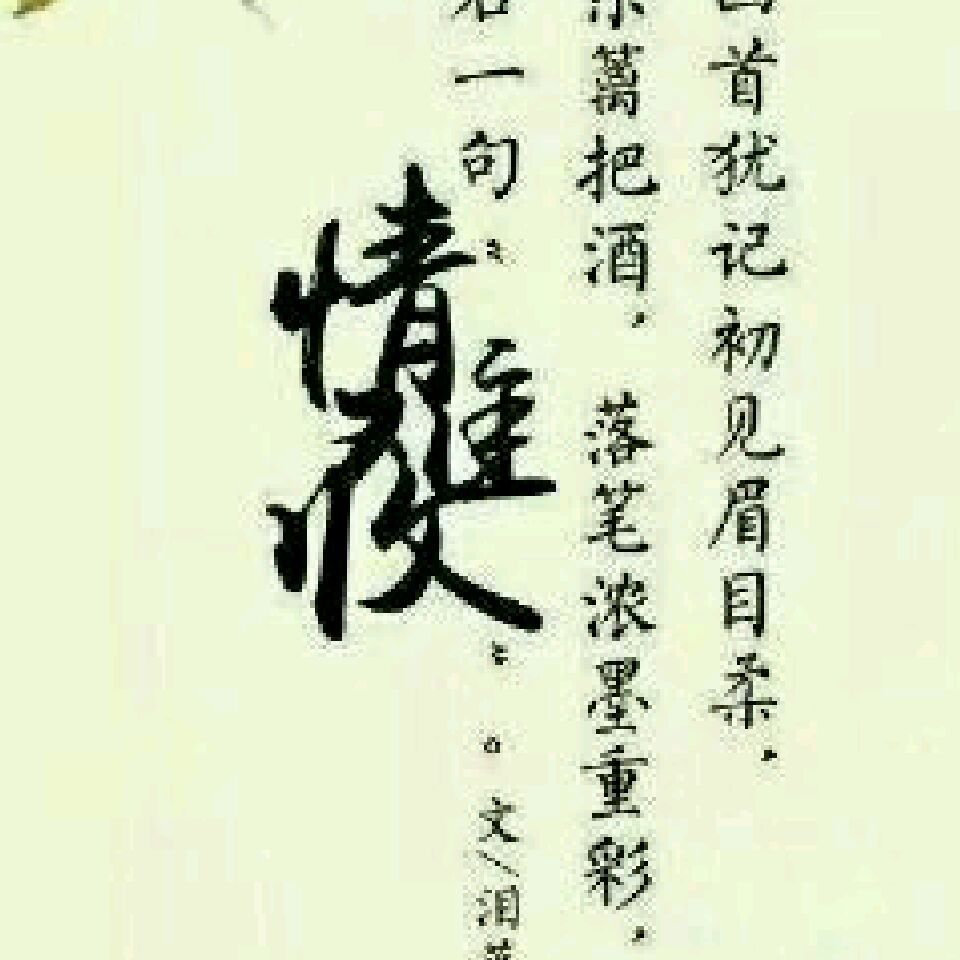 首犹记初见眉目柔，
把酒，落笔浓墨重彩，
一句“情难收”。文/泪